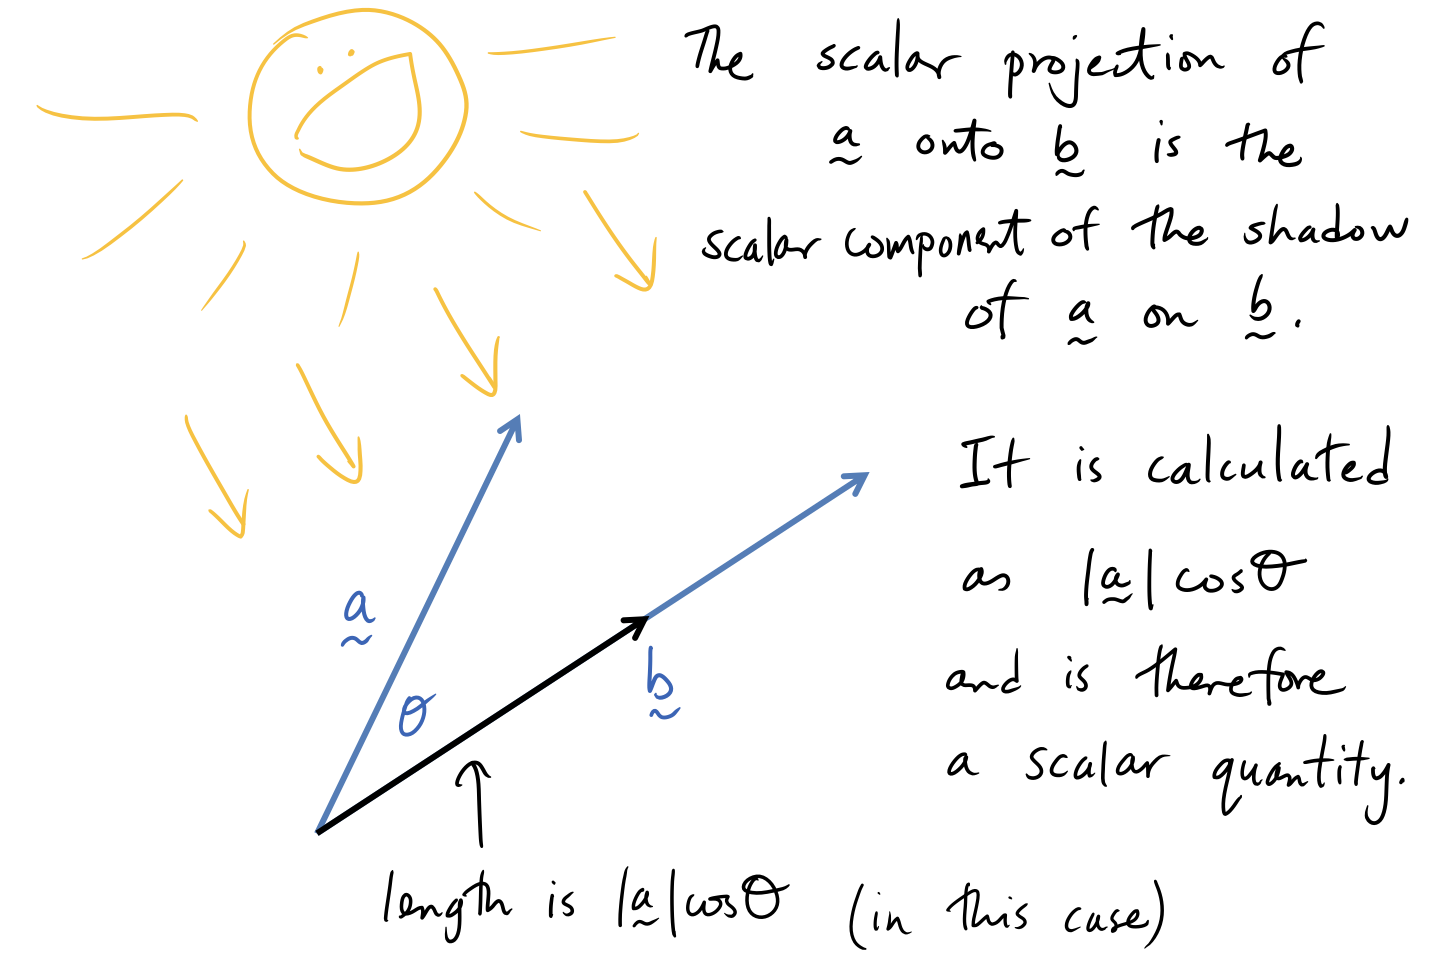 The scalar projection of
a onto b is the
scalar component of the shadow
of a on b.
It is calculated
as |a| cosθ
and is therefore
a scalar quantity.
a
θ
b
length is |a|cosθ (in this case)